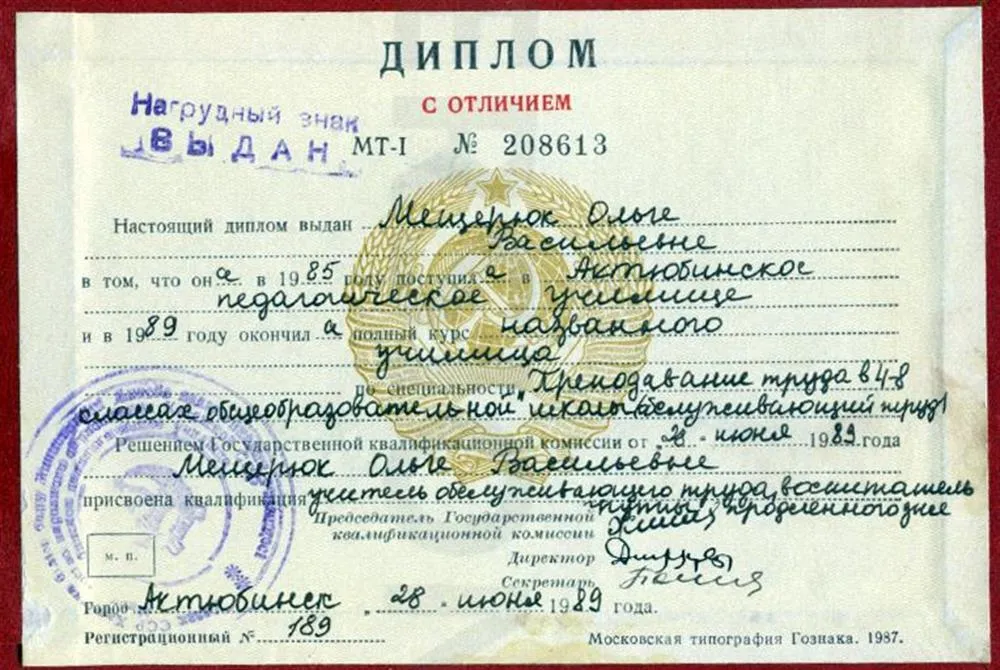 ДИПЛОМ
С ОТЛИЧИЕМ
Нагрудный знак
ВЫДАН
МТ-I № 208613
Настоящий диплом выдан Мещерюк Ольге
Васильевне
в том, что она в 1985 году поступила в Актюбинское
педагогическое училище
и в 1989 году окончила полный курс названного
училища
по специальности „Преподавание труда в 4-8
классах общеобразовательной школы (обслуживающий труд)
Решением Государственной квалификационной комиссии от 28 июня 1989 года
Мещерюк Ольге Васильевне
присвоена квалификация учитель обслуживающего труда, воспитатель
группы продленного дня
Председатель Государственной
квалификационной комиссии
Директор
Секретарь
м. п.
Город Актюбинск „ 28 „ июня 1989 года.
Регистрационный № 189
Московская типография Гознака. 1987.